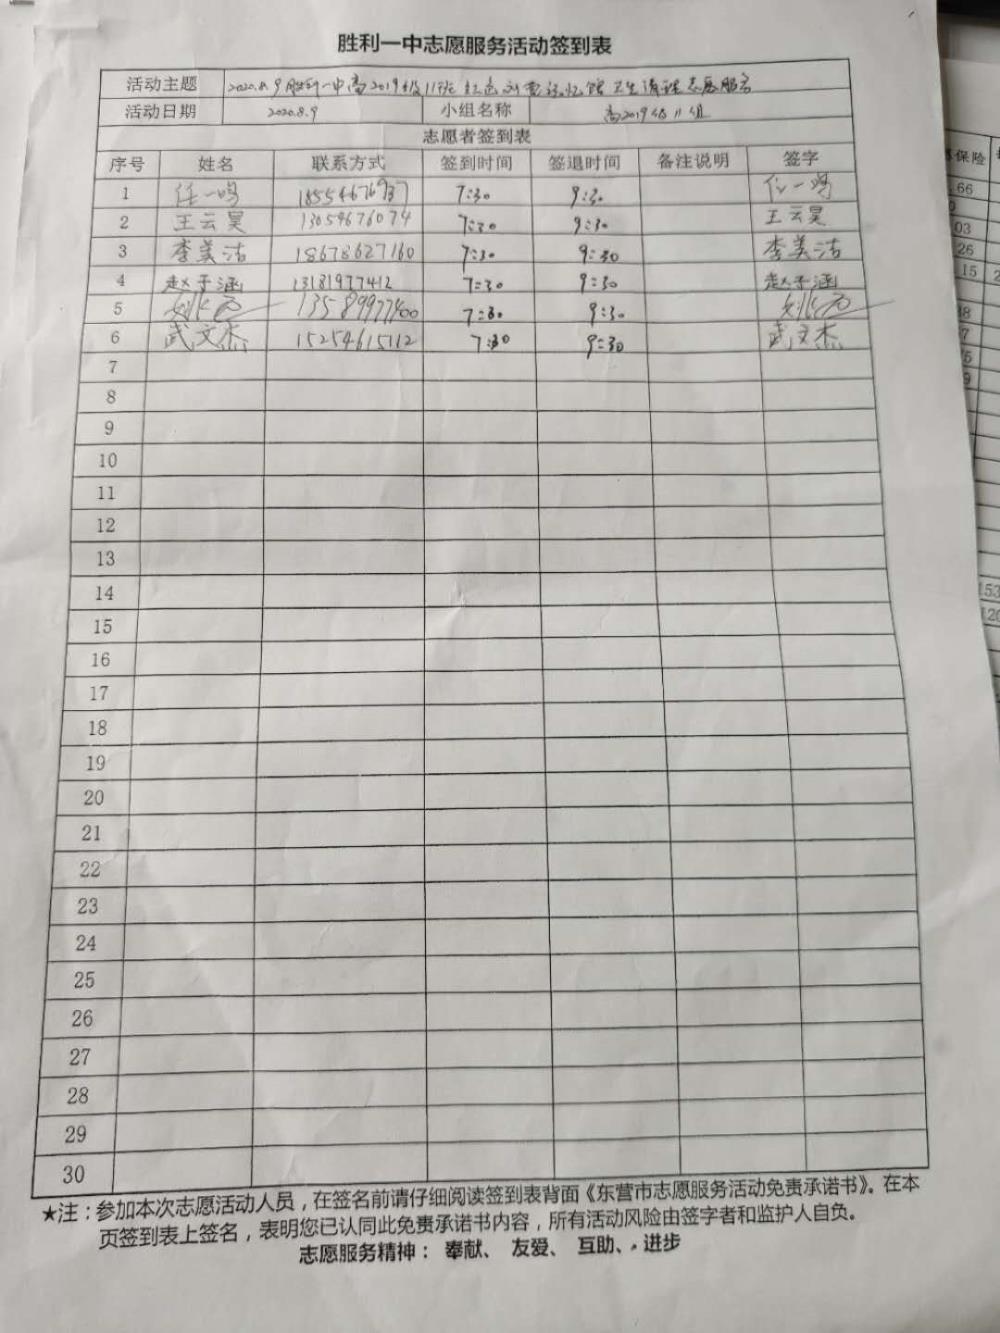 胜利一中志愿服务活动签到表
活动主题 2020.8.9胜利一中高2019级11班红色刘集记忆馆卫生清理志愿服务
活动日期 2020.8.9 小组名称 高2019级11组
志愿者签到表
序号 姓名 联系方式 签到时间 签退时间 备注说明 签字
1 任一鸣 18554676937 7:30 9:30 任一鸣
2 王云昊 13054676074 7:30 9:30 王云昊
3 李美洁 18678627160 7:30 9:30 李美洁
4 赵子涵 13181977412 7:30 9:30 赵子涵
5 13589977400 7:30 9:30
6 武文杰 15254615112 7:30 9:30 武文杰
7
8
9
10
11
12
13
14
15
16
17
18
19
20
21
22
23
24
25
26
27
28
29
30
★注：参加本次志愿活动人员，在签名前请仔细阅读签到表背面《东营市志愿服务活动免责承诺书》。在本
页签到表上签名，表明您已认同此免责承诺书内容，所有活动风险由签字者和监护人自负。
志愿服务精神： 奉献、 友爱、 互助、 进步
保险
66
03
26
15
153
120